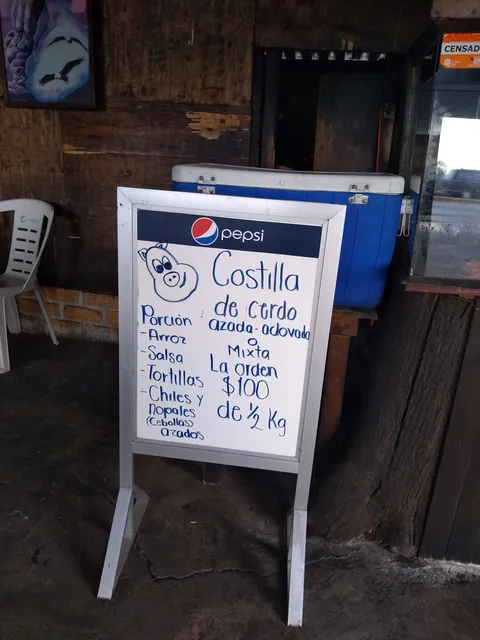 CENSADO
pepsi
Costilla
de cerdo
azada-adovada
o
Mixta
La orden
$100
de ½ Kg
Porción
-Arroz
-Salsa
-Tortillas
-Chiles y
nopales
(Cebollas)
azados